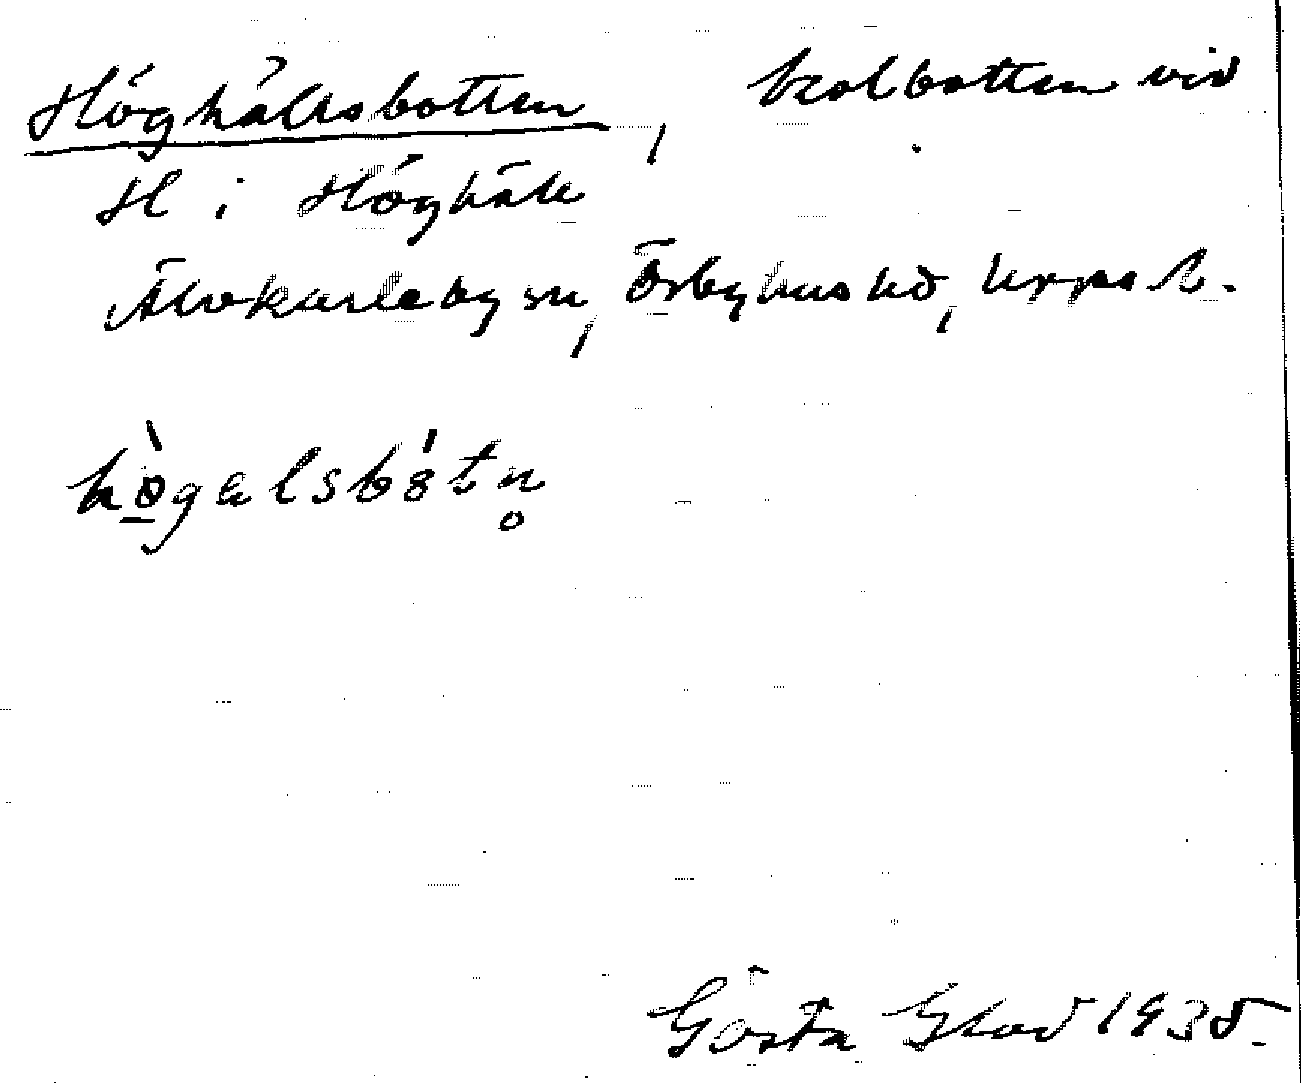 Höghällsbotten, kolbotten vid
H i Höghäll
Älvkarleby sn, Örbyhus hd, Upps l.
högälsbótn
Gösta Glad 1935.